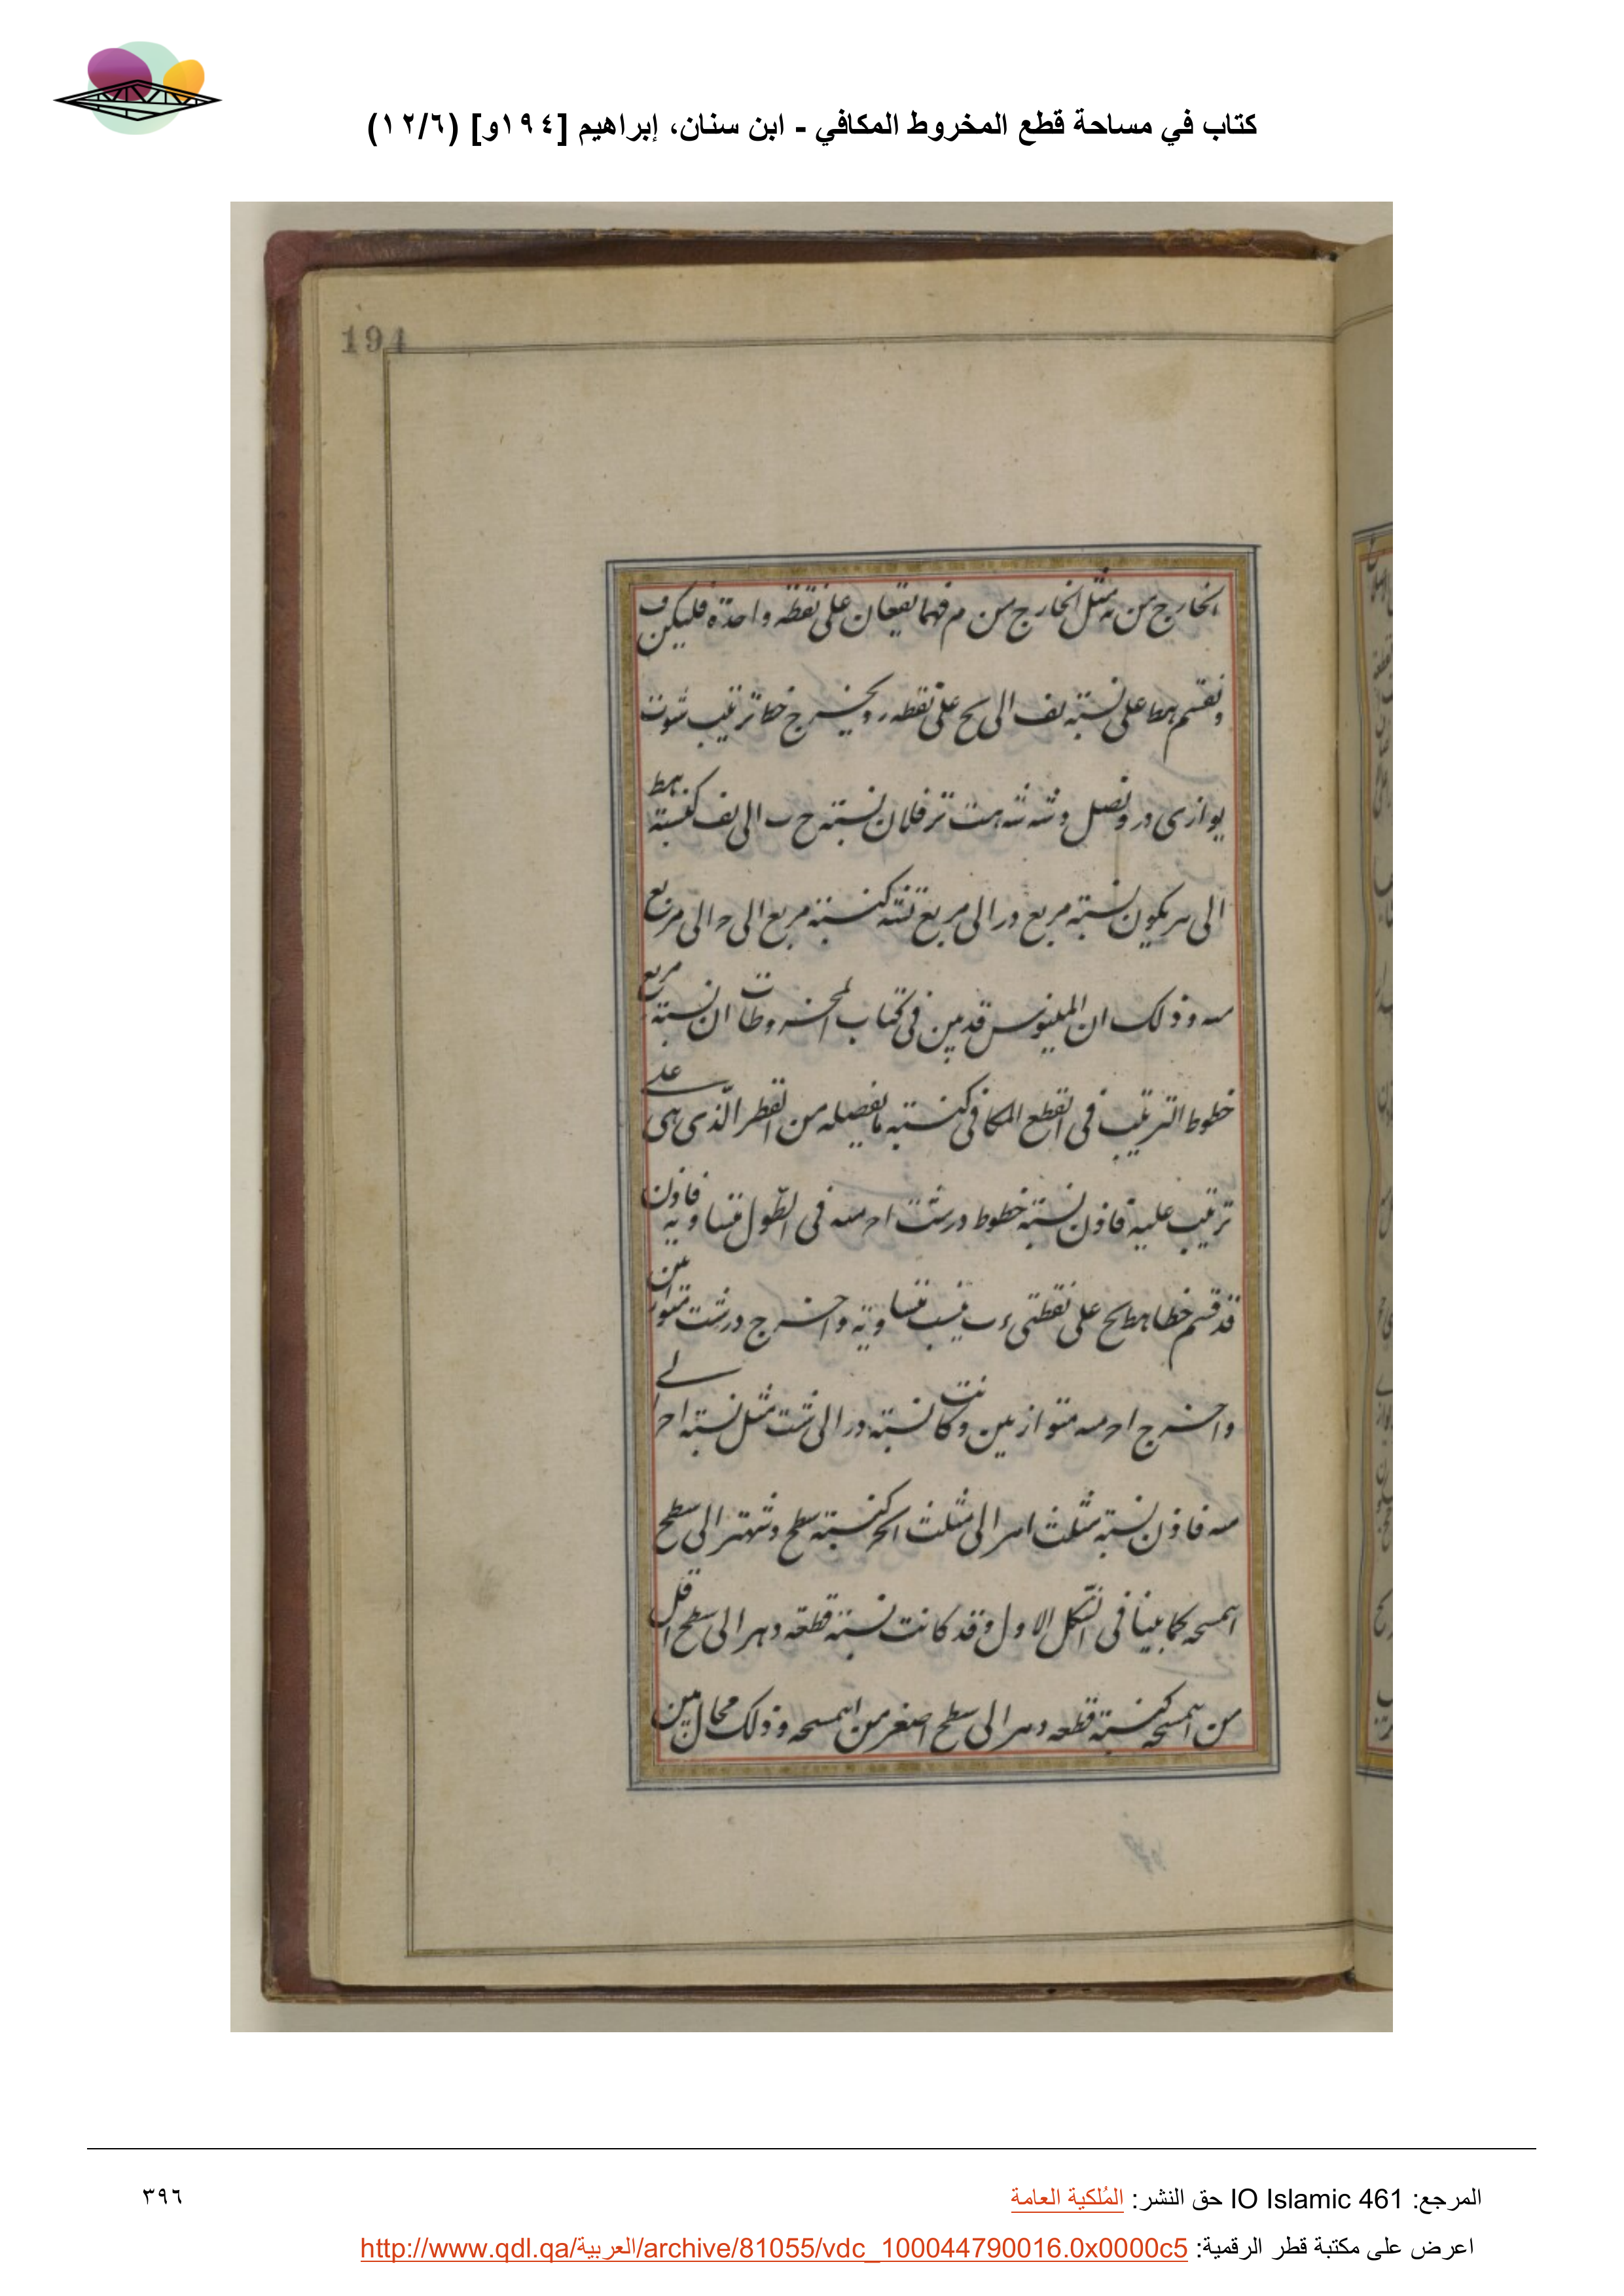 كتاب في مساحة قطع المخروط المكافي - ابن سنان، إبراهيم [١٩٤و] (١٢/٦)
194
الخارج من ه مثل الخارج من م فهما يقعان على نقطة واحدة فليكن ف
ونقسم هط على نسبة ىف الى ىح على نقطه ر ويخرج خطا ترتيب
يوازى در ونصل فلان نسبة ح ب الى ىف كنسبة هط
الى يكون نسبة مربع در الى مربع كنسبة مربع الى ح الى مربع
سه وذلك ان ابلنيوس قد بين فى كتاب المخروطات ان نسبة مربع
خطوط الترتيب فى القطع المكافى كنسبة ما يفصله من القطر الذى هى على
ترتيب عليه فاذن نسبة خطوط در شت اح سه فى الطول متساوية فاذن
قد قسم خطا هط ىح على نقطتى ب بنسب متساوية واخرج در شت متوازيين
واخرج اح سه متوازيين وكانت نسبة در الى شت مثل نسبة اح الى
سه فاذن نسبة مثلث الى مثلث كنسبة سطح الى سطح
كما بينا فى الشكل الاول وقد كانت نسبة قطعة دهر الى سطح اقل
من كنسبة قطعه دهر الى سطح اصغر من وذلك محال يبين
٣٩٦
المرجع: IO Islamic 461 حق النشر: المُلكية العامة
اعرض على مكتبة قطر الرقمية: http://www.qdl.qa/العربية/archive/81055/vdc_100044790016.0x0000c5